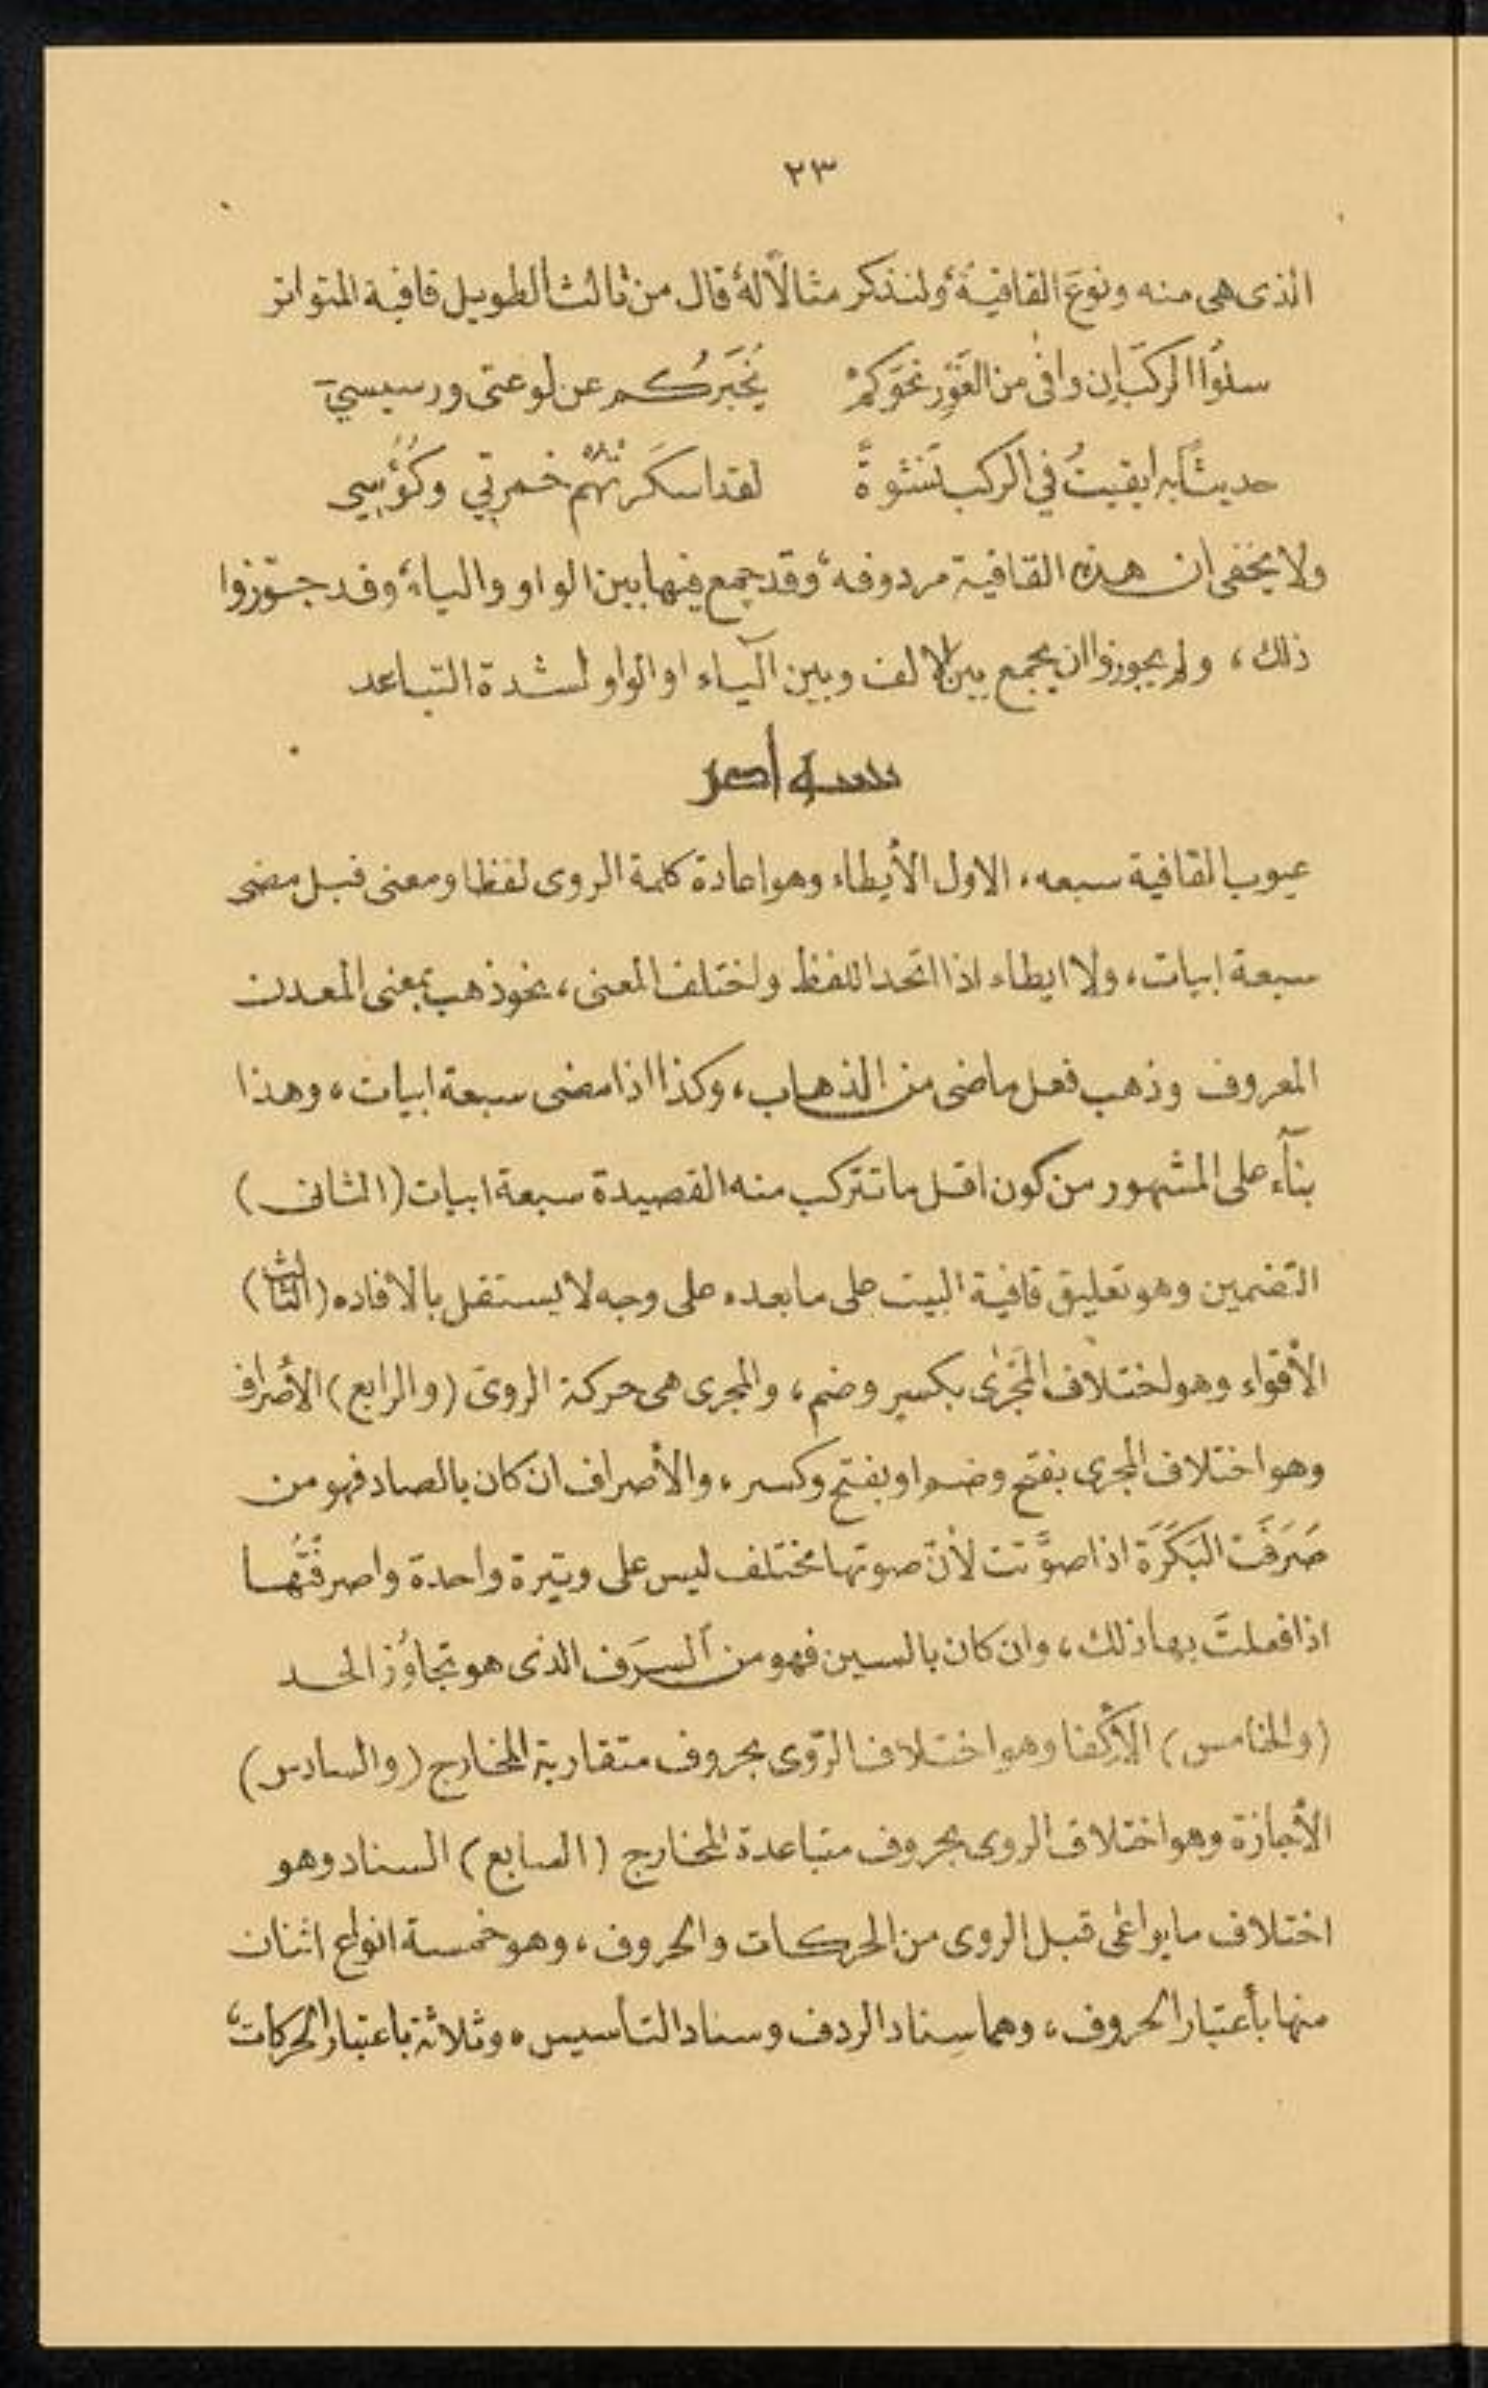 ٢٣
الذى هى منه ونوعَ القافيةِ، ولنذكر مثالًا لهُ قال من ثالث الطويل قافية المتواتر
سلُوا الركبَ إن وافى من الغَوْرِ نحوَكمْ يُخَبّركُم عن لوعتى ورسيسيَ
حديثًا به ابقيتُ في الركب نَشْوةً لقد اسكَرَتْهُمْ خمرتي وكُؤُسِي
ولا يخفى ان هذه القافية مردوفه، وقد جمع فيها بين الواو والياء، وقد جوّزوا
ذلك، ولم يجوزوا ان يجمع بين الالف وبين الياء او الواو لشدة التباعد
عيوب القافية سبعه، الاول الأيطاء وهو اعادة كلمة الروى لفظا ومعنى قبل مضى
سبعة ابيات، ولا ايطاء اذا اتحد اللفظ واختلف المعنى، نحو ذهب بمعنى المعدن
المعروف وذهب فعل ماضى من الذهاب، وكذا اذا مضى سبعة ابيات، وهذا
بنآء على المشهور من كون اقل ما تتركب منه القصيدة سبعة ابيات (الثانى)
التضمين وهو تعليق قافية البيت على ما بعده على وجه لا يستقل بالافاده (الثالث)
الأقواء وهو اختلاف المَجْرى بكسر وضم، والمجرى هى حركة الروىّ (والرابع) الأصراف
وهو اختلاف المجرى بفتح وضم او بفتح وكسر، والأصراف ان كان بالصاد فهو من
صَرَفَت البَكَرَة اذا صوَّتت لأنّ صوتها مختلف ليس على وتيرة واحدة واصرفْتُها
اذا فعلتَ بها ذلك، وان كان بالسين فهو من السَرَف الذى هو تجاوُز الحد
(والخامس) الأكفا وهو اختلاف الرّوى بحروف متقاربة المخارج (والسادس)
الأجازة وهو اختلاف الروى بحروف متباعدة المخارج (السابع) السناد وهو
اختلاف ما يراعى قبل الروى من الحركات والحروف، وهو خمسة انواع اثنان
منها بأعتبار الحروف، وهما سِناد الردف وسناد التأسيس، وثلاثة باعتبار الحركات،